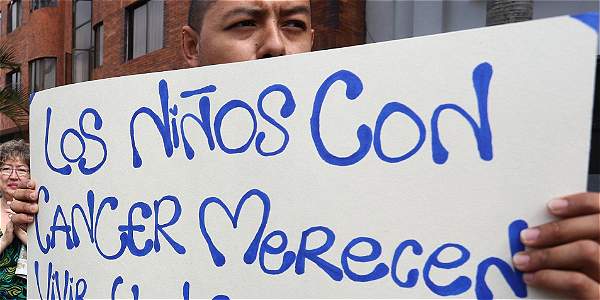 Los Niños Con
CANCER Merecen
Vivir